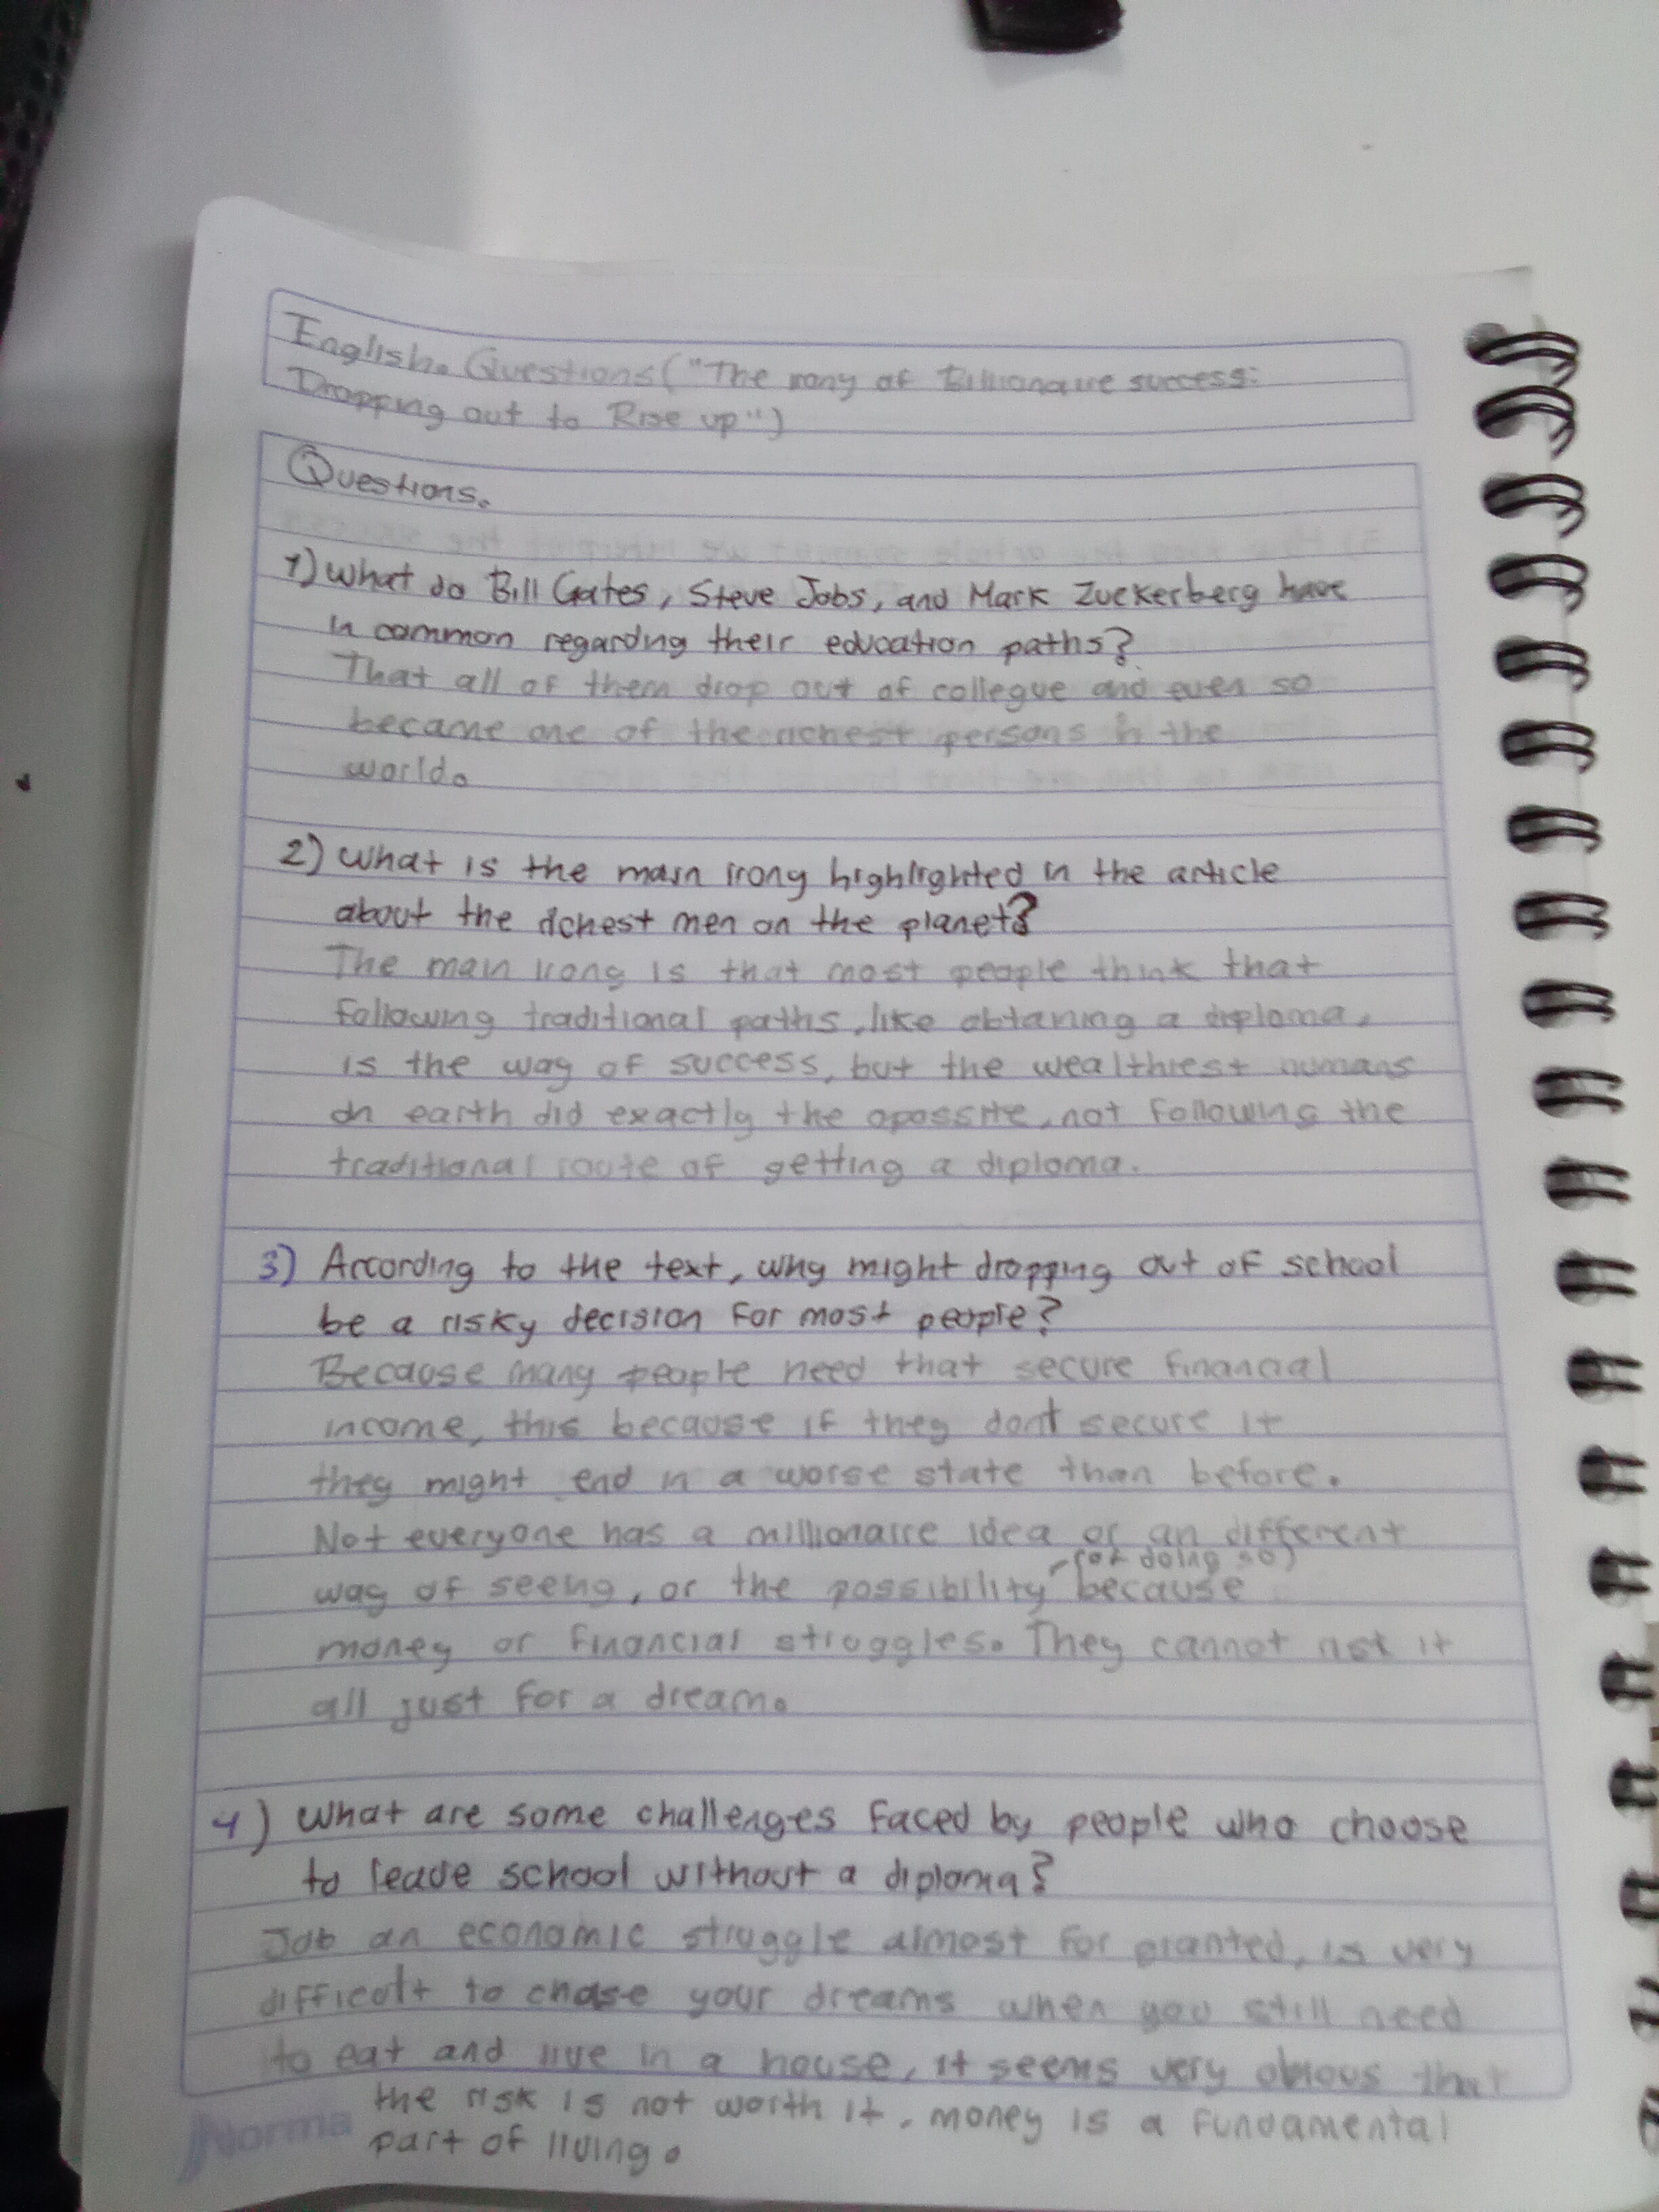 English. Questions ("The irony of Billionaire success:
Dropping out to Rise up")
Questions.
1) What do Bill Gates, Steve Jobs, and Mark Zuckerberg have
in common regarding their education paths?
That all of them drop out of collegue and even so
became one of the richest persons in the
world.
2) What is the main irony highlighted in the article
about the richest men on the planet?
The main irony is that most people think that
following traditional paths, like obtaning a diploma,
is the way of success, but the wealthiest humans
on earth did exactly the opossite, not following the
traditional route of getting a diploma.
3) According to the text, why might dropping out of school
be a risky decision for most people?
Because many people need that secure financial
income, this because if they dont secure it
they might end in a worse state than before.
Not everyone has a millionaire idea or an different
(of doing so)
way of seeing, or the possibility because
money or financial struggles. They cannot risk it
all just for a dream.
4) What are some challenges faced by people who choose
to leave school without a diploma?
Job an economic struggle almost for granted, is very
difficult to chase your dreams when you still need
to eat and live in a house, it seems very obious that
the risk is not worth it, money is a fundamental
part of living.
Norma